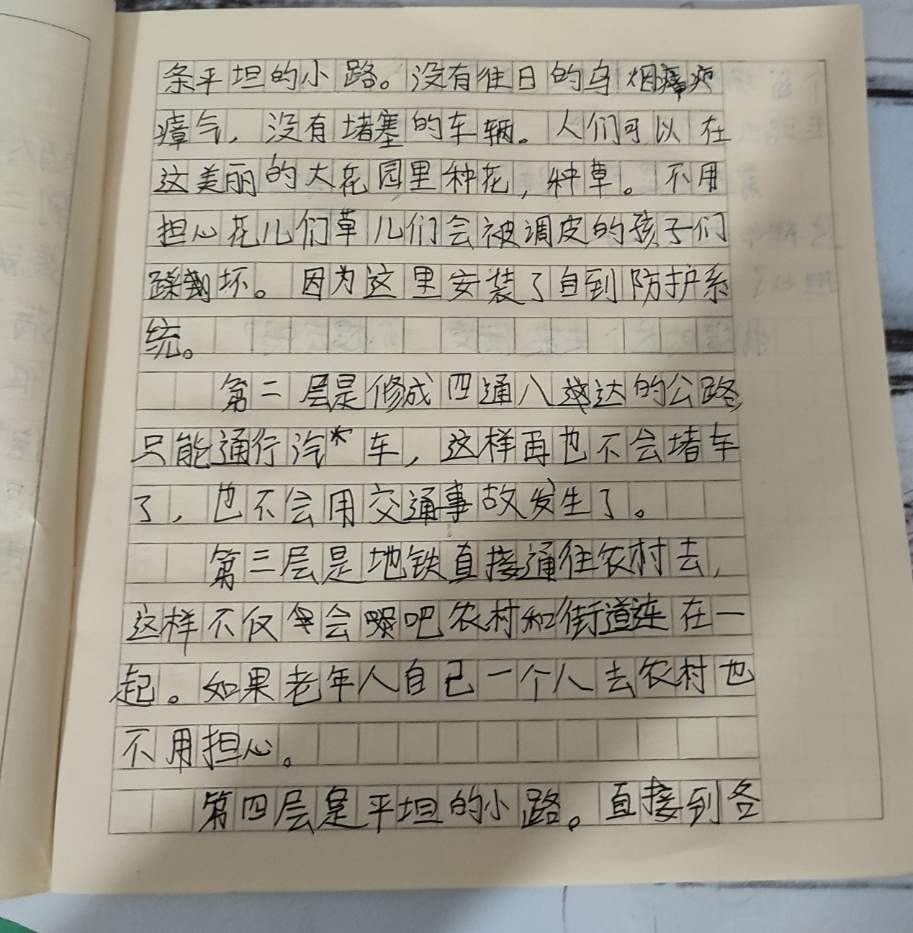 条平坦的小路。没有往日的乌烟瘴
瘴气，没有堵塞的车辆。人们可以在
这美丽的大花园里种花，种草。不用
担心花儿们草儿们会被调皮的孩子们
踩坏。因为这里安装了自到防护系
统。
第二层是修成四通八达的公路，
只能通行汽车，这样再也不会堵车
了，也不会用交通事故发生了。
第三层是地铁直接通往农村去，
这样不仅会吧农村和街道连在一
起。如果老年人自己一个人去农村也
不用担心。
第四层是平坦的小路。直接到各